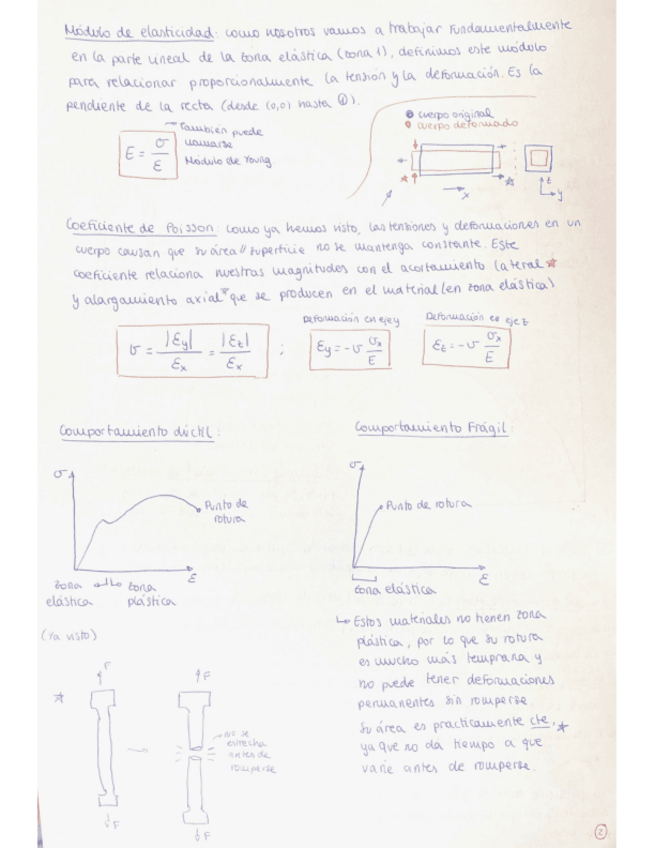 Módulo de elasticidad: como nosotros vamos a trabajar fundamentalmente
en la parte lineal de la zona elástica (zona 1), definimos este módulo
para relacionar proporcionalmente la tensión y la deformación. Es la
pendiente de la recta (desde (0,0) hasta ①).
También puede
llamarse
Módulo de Young
E = σ/ε
cuerpo original
cuerpo deformado
x
z
y
Coeficiente de Poisson: como ya hemos visto, las tensiones y deformaciones en un
cuerpo causan que su área//superficie no se mantenga constante. Este
coeficiente relaciona nuestras magnitudes con el acortamiento lateral ☆
y alargamiento axial☆ que se producen en el material (en zona elástica)
Deformación en eje y
Deformación en eje z
υ = |εy|/εx = |εz|/εx ; εy = -υ σx/E
εz = -υ σx/E
Comportamiento dúctil:
Comportamiento Frágil:
σ
Punto de
rotura
ε
zona
elástica
zona
plástica
σ
Punto de rotura
ε
zona elástica
(Ya visto)
F
F
☆
F
F
no se
estrecha
antes de
romperse
↳ Estos materiales no tienen zona
plástica, por lo que su rotura
es mucho más temprana y
no puede tener deformaciones
permanentes sin romperse.
Su área es practicamente cte, ☆
ya que no da tiempo a que
varíe antes de romperse.
2